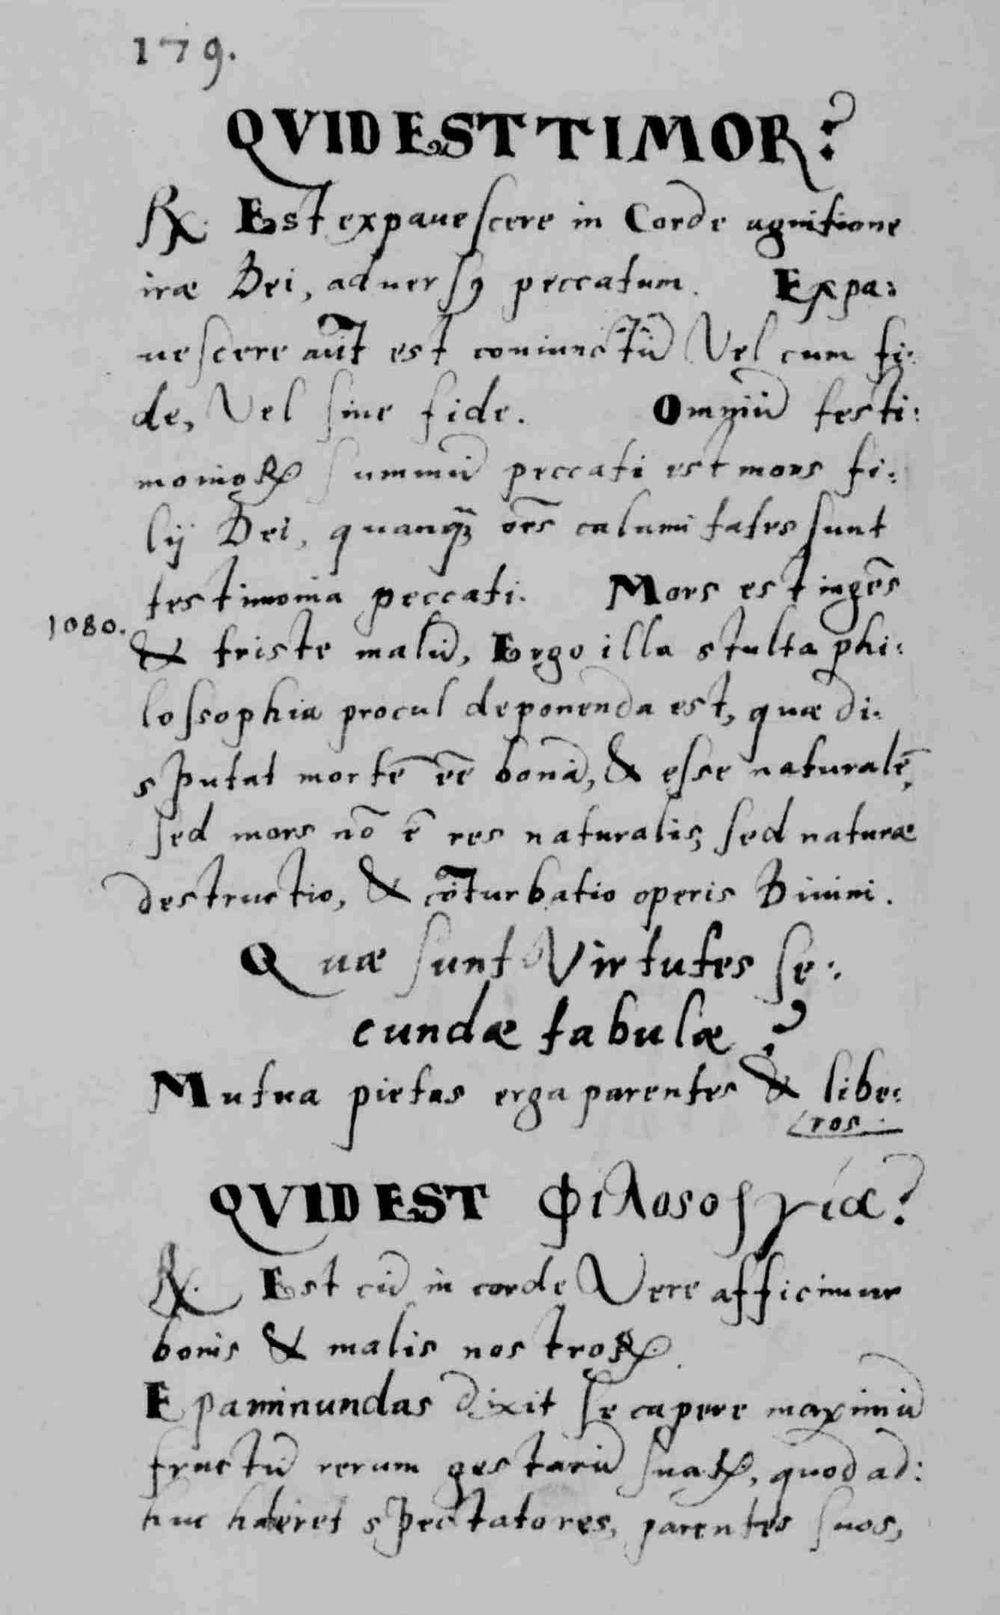 179.
QVID EST TIMOR?
℞. Est expauescere in Corde agnitione
iræ Dei, aduersꝯ peccatum. Expa:
uescere aut̃ est coniunctũ Vel cum fi:
de, Vel sine fide. Omniũ testi:
monioꝝ summũ peccati est mors fi:
lij Dei, quanq̃ꝫ oẽs calamitates sunt
testimonia peccati. Mors est ingẽs
1080.
& triste malũ, Ergo illa stulta phi:
lossophia procul deponenda est, quæ di:
sputat mortẽ eẽ bonã, & esse naturalẽ,
sed mors nõ ẽ res naturalis, sed naturæ
destructio, & cõturbatio operis Diuini.
Quæ sunt Virtutes se:
cundæ tabulæ?
Mutua pietas erga parentes & libe:
ros.
QVID EST
℞. Est cũ in corde Vere afficimur
bonis & malis nostroꝝ.
Epaminundas dixit se capere maximũ
fructũ rerum gestarũ suaꝝ, quod ad:
huc haberet spectatores, parentes suos,